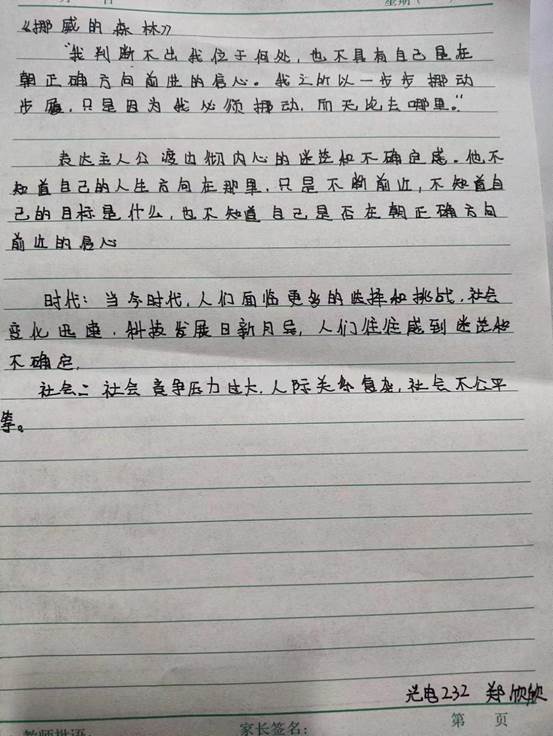 《挪威的森林》
"我判断不出我位于何处，也不具有自己是在
朝正确方向前进的信心。我之所以一步步挪动
步履，只是因为我必须挪动，而无论去哪里。"
表达主人公渡边彻内心的迷茫和不确定感。他不
知道自己的人生方向在那里，只是不断前近，不知道自
己的目标是什么，也不知道自己是否在朝正确方向
前近的信心
时代：当今时代，人们面临更多的选择和挑战，社会
变化迅速，科技发展日新月异，人们往往感到迷茫和
不确定。
社会：社会竞争压力过大，人际关系复杂，社会不公平
等。
光电232 郑欣欣
第 页
家长签名：
教师批语：